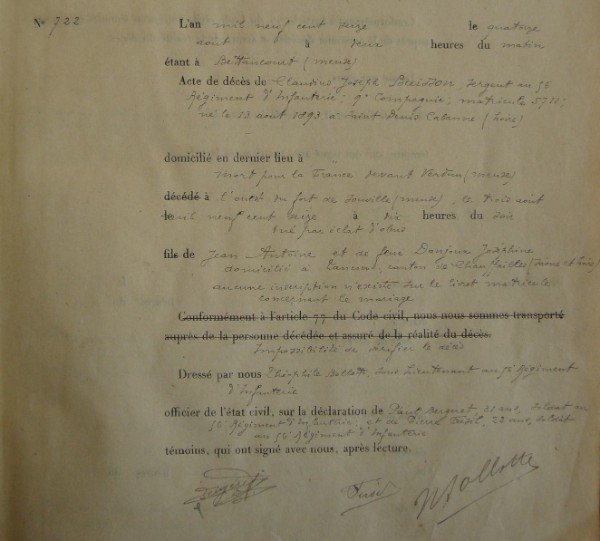 N° 722
L'an mil neuf cent seize le quatorze
août à deux heures du matin
étant à Bettancourt (meuse)
Acte de décès de Claudius Joseph sergent au 5e
Régiment d'Infanterie; 9e Compagnie; matricule
né le 13 août 1893 à Saint Denis Cabanne (Loire)
domicilié en dernier lieu à
mort pour la France devant Verdun (meuse)
décédé à l'ouest du fort de Souville (meuse), le trois août
le mil neuf cent seize à dix heures du soir
tué par éclat d'obus
fils de Jean Antoine et de feue Donjoux Joséphine
domicilié à canton de (Saône et Loire)
aucune inscription n'existe sur le livret matricule
concernant le mariage
Conformément à l'article 77 du Code civil, nous nous sommes transporté
auprès de la personne décédée et assuré de la réalité du décès.
Impossibilité de vérifier le décès
Dressé par nous Théophile sous Lieutenant au 5e Régiment
d'Infanterie
officier de l'état civil, sur la déclaration de Paul ans, soldat au
5e Régiment d'Infanterie, et de Pierre 22 ans, soldat
au 5e Régiment d'Infanterie
témoins, qui ont signé avec nous, après lecture.